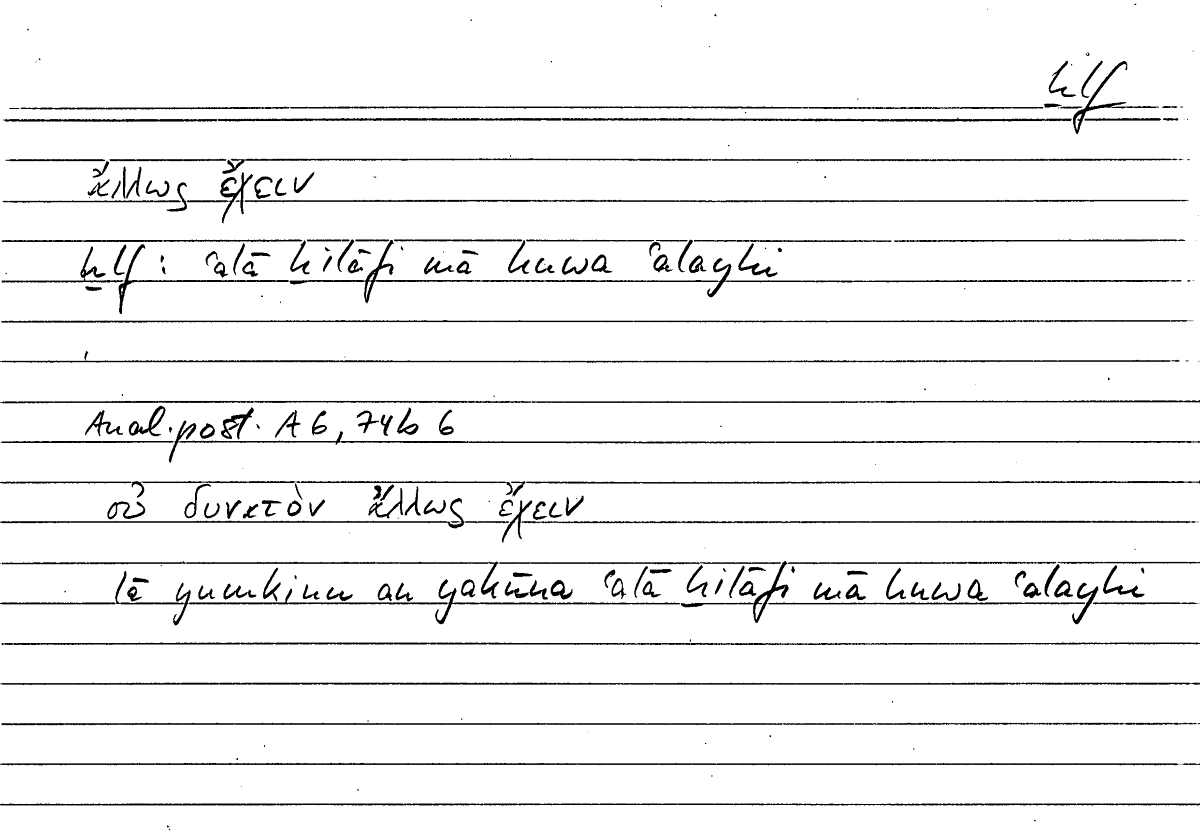 ḫlf
ἄλλως ἔχειν
ḫlf : ʿalā ḫilāfi mā huwa ʿalayhi
Anal. post. A 6, 74b 6
οὐ δυνατὸν ἄλλως ἔχειν
lā yumkinu an yakūna ʿalā ḫilāfi mā huwa ʿalayhi